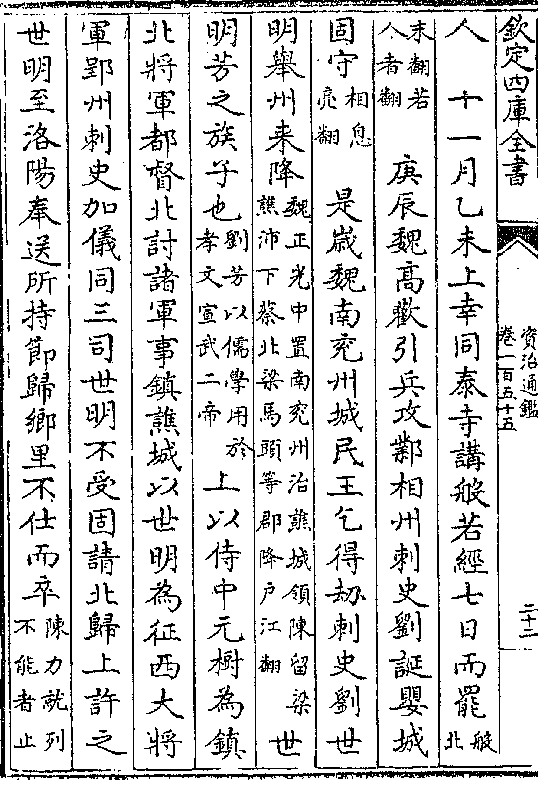 欽定四庫全書
資治通鑑
卷一百五十五
二十二
人　十一月乙未上幸同泰寺講般若經七日而罷般北
末翻若人者翻　庚辰魏高歡引兵攻鄴相州刺史劉誕嬰城
固守相息亮翻　是歲魏南兖州城民王乞得劫刺史劉世
明舉州来降魏正光中置南兖州治譙城領陳留梁譙沛下蔡北梁馬頭等郡降户江翻世
明芳之族子也劉芳以儒學用於孝文宣武二帝上以侍中元樹為鎮
北將軍都督北討諸軍事鎮譙城以世明為征西大將
軍郢州刺史加儀同三司世明不受固請北歸上許之
世明至洛陽奉送所持節歸鄉里不仕而卒陳力就列不能者止